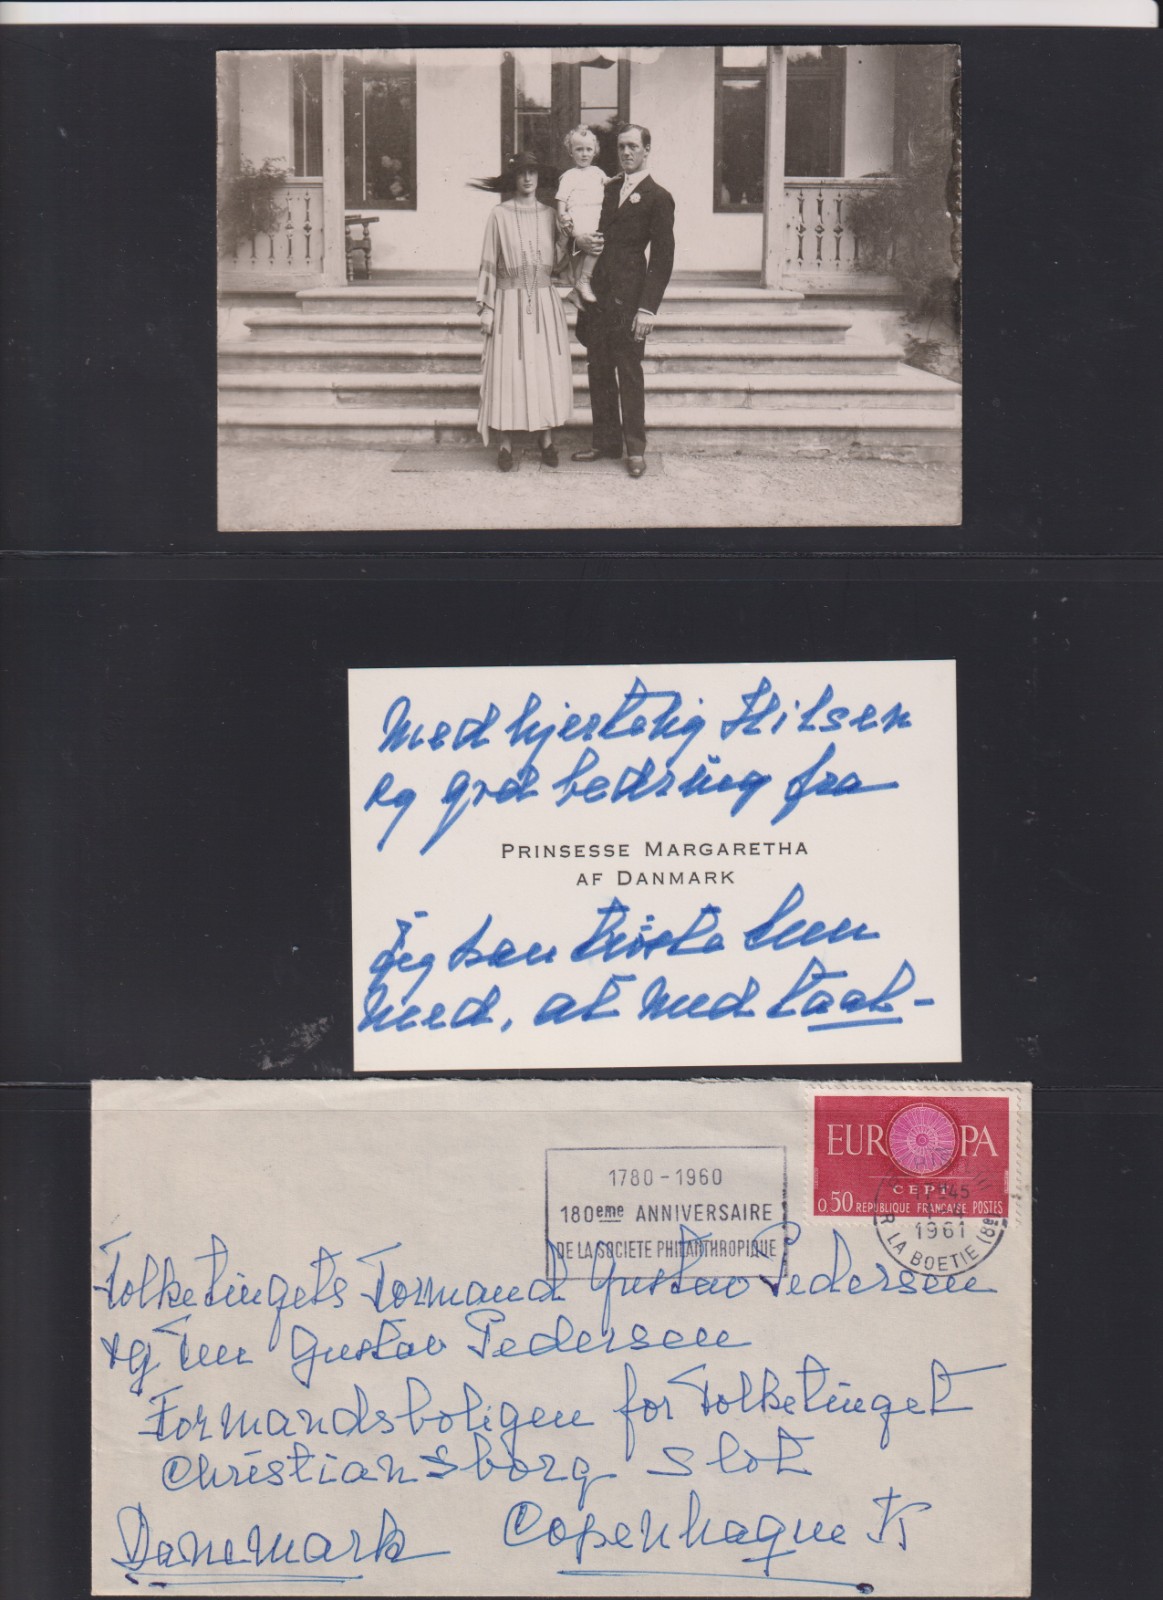 Med hjertelig Hilsen
og god bedring fra
PRINSESSE MARGARETHA
AF DANMARK
Jeg kan trøste hun
med, at med taal-
1780 - 1960
180eme ANNIVERSAIRE
DE LA SOCIETE PHILANTHROPIQUE
EUROPA
CEPT
0,50 REPUBLIQUE FRANÇAISE POSTES
17H45
1961
R. LA BOETIE (8e)
Folketingets Formand Gustav Pedersen
og Fru Gustav Pedersen
Formandsboligen for Folketinget
Christiansborg Slot
Danemark Copenhague K